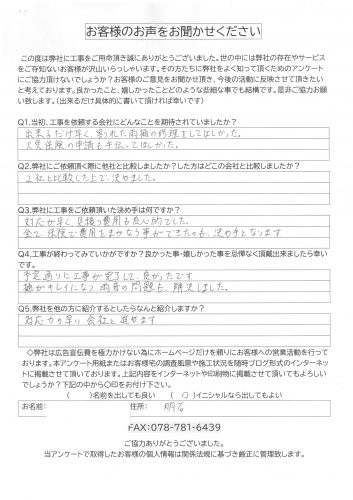 お客様のお声をお聞かせください
この度は弊社に工事をご用命頂き誠にありがとうございました。世の中には弊社の存在やサービス
をご存知ないお客様が沢山いらっしゃいます。その方たちに弊社をよく知って頂くためのアンケート
にご協力頂けないでしょうか？お客様のご意見をお聞かせ頂き、今後の活動に反映させて頂きたい
と考えております。良かったこと、嬉しかったことどのような些細な事でも結構です。是非ご協力お願
い致します。（出来るだけ具体的に書いて頂ければ幸いです）
Q1.当初、工事を依頼する会社にどんなことを期待されていましたか？
出来るだけ早く、割れた雨樋の修理をしてほしかった。
火災保険の申請も手伝ってほしかった。
Q2.弊社にご依頼頂く際に他社と比較しましたか？した方はどこの会社と比較しましたか？
2社と比較した上で、決めました。
Q3.弊社に工事をご依頼頂いた決め手は何ですか？
対応が早く、見積り費用も良心的でした。
全て、保険で費用をまかなう事ができたのも、決め手となります
Q4.工事が終わってみていかがですか？良かった事・嬉しかった事を忌憚なく頂戴出来ましたら幸い
です。
予定通りに工事が完了して、良かったです
樋がキレイになり、雨音の問題も、解決しました。
Q5.弊社を他の方に紹介するとしたらなんと紹介しますか？
対応力の早い会社と進めます
◇弊社は広告宣伝費を極力かけない為にホームページだけを頼りにお客様への営業活動を行って
おります。本アンケート用紙またはお客様宅の調査風景や施工状況を随時ブログ形式のインターネッ
トに掲載させて頂いております。上記内容をインターネットや印刷物に掲載させて頂いてもよろしい
でしょうか？下記の中から〇印をお付け下さい。
（　）名前を出しても良い　（〇）イニシャルなら出してもよい
お名前：　住所：明石
FAX：078-781-6439
ご協力ありがとうございました。
当アンケートで取得したお客様の個人情報は関係法規に基づき厳正に管理致します。